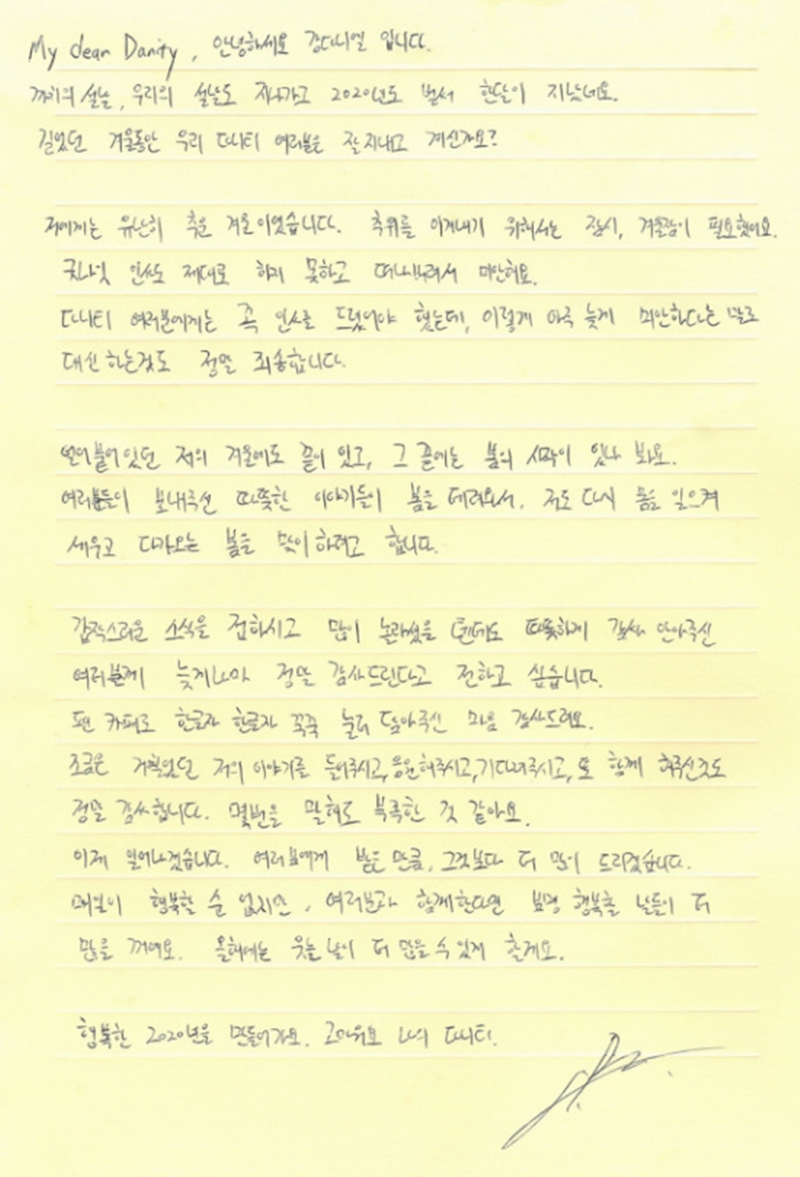 My dear Danity, 안녕하세요 강다니엘 입니다.
까치의 설날, 우리의 설날도 지나가고 2020년도 벌써 한달이 지났네요.
길었던 겨울동안 우리 다니티 여러분은 잘 지내고 계신가요?
저에게는 유난히 추운 겨울이었습니다. 추위를 이겨내기 위해서는 잠시, 겨울잠이 필요했어요.
굿나잇 인사도 제대로 하지 못하고 떠나버려서 미안해요.
다니티 여러분에게는 꼭 인사를 드렸어야 했는데, 이렇게 아주 늦게 미안하다는 말로
대신 하는것도 정말 죄송합니다.
얼어붙어있던 저의 겨울에도 끝이 있고, 그 끝에는 봄의 시작이 있나 봐요.
여러분들이 보내주신 따뜻한 이야기들이 봄을 데려와서, 저도 다시 몸을 일으켜
세우고 다가오는 봄을 맞이하려고 합니다.
갑작스러운 소식을 접하시고 많이 놀라셨을 텐데도 따뜻하게 감싸 안아주신
여러분께 늦게나마 정말 감사드린다고 전하고 싶습니다.
팬 카페로 한글자 한글자 꾹꾹 눌러 담아주신 마음 감사드려요.
조금은 거칠었던 저의 이야기를 들어주시고, 응원해주시고, 기다려주시고, 또 함께 해주신것도
정말 감사합니다. 몇번을 말해도 부족한 것 같아요.
이제 일어나겠습니다. 여러분에게 받은 만큼, 그것보다 더 많이 드리겠습니다.
매일이 행복할 순 없지만, 여러분과 함께한다면 분명 행복할 날들이 더
많을 꺼에요. 올해에는 웃는 날이 더 많을 수 있게 할게요.
행복한 2020년을 만들어가요. 고마워요 나의 다니티.